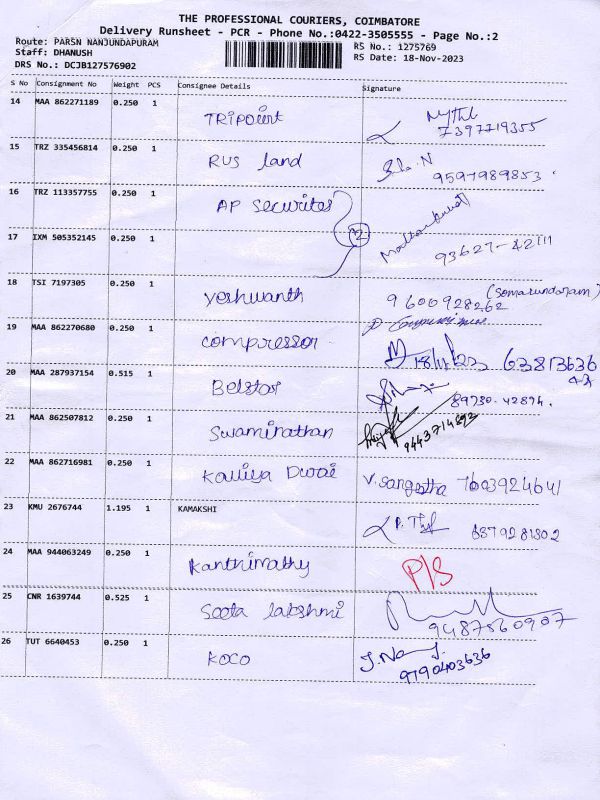 THE PROFESSIONAL COURIERS, COIMBATORE
Delivery Runsheet - PCR - Phone No.:0422-3505555 - Page No.:2
Route: PARSN NANJUNDAPURAM
Staff: DHANUSH
DRS No.: DCJB127576902
RS No.: 1275769
RS Date: 18-Nov-2023
S No Consignment No Weight PCS Consignee Details Signature
14 MAA 862271189 0.250 1 TRIPOint 7397719355
15 TRZ 335456814 0.250 1 RUS land 9597989853
16 TRZ 113357755 0.250 1 AP Securites
17 IXM 505352145 0.250 1 2 93627-42111
18 TSI 7197305 0.250 1 Yeshwanth 9600928262 (Somasundaram)
19 MAA 862270680 0.250 1 compressor 18/11/23 63813636
20 MAA 287937154 0.515 1 Belstar 89730-42894.
21 MAA 862507812 0.250 1 Swaminathan 9443714892
22 MAA 862716981 0.250 1 Kaliya Durai V. Sangeetha 7603924641
23 KMU 2676744 1.195 1 KAMAKSHI 6879281802
24 MAA 944063249 0.250 1 Kanthimathy P/S
25 CNR 1639744 0.525 1 Seeta lakshmi 9487560907
26 TUT 6640453 0.250 1 KOCO 9190403636